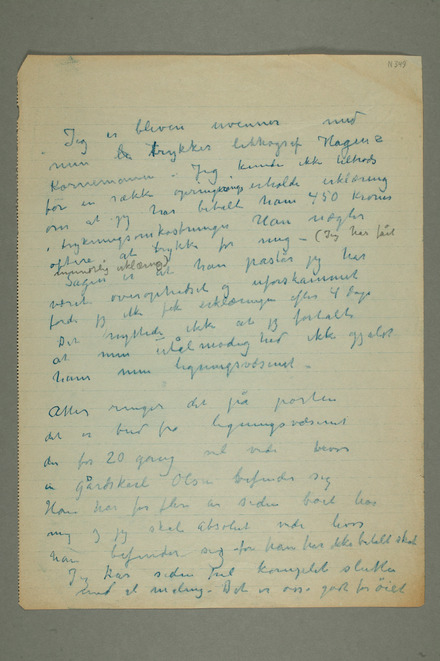 N 349
Jeg er bleven uvenner med
min trykker lithograf Hagen &
Kornemann. Jeg kunde ikke tiltrods
for en række opringninger erholde erklæring
om at jeg har betalt ham 450 Kroner
i trykningsomkostninger Han nægter
oftere at trykke for mig – (Jeg har fåt
erklæring)
Sagen er at han påstår jeg har
været overophedset og uforskammet
fordi jeg ikke fik erklæringen efter 4 dage
Det nyttede ikke at jeg fortalte
at min utålmodighed ikke gjaldt
ham men ligningsvæsenet –
Atter ringer det på porten
det er bud fra ligningsvæsenet
der for 20 gang vil vide hvor
en Gårdskarl Olsen befinder sig
Han har for flere år siden boet hos
mig og jeg skal absolut vide hvor
han befinder sig – for han har ikke betalt skat
Jeg har siden Jul komplet sluttet
med at male – Det er også godt for øiet